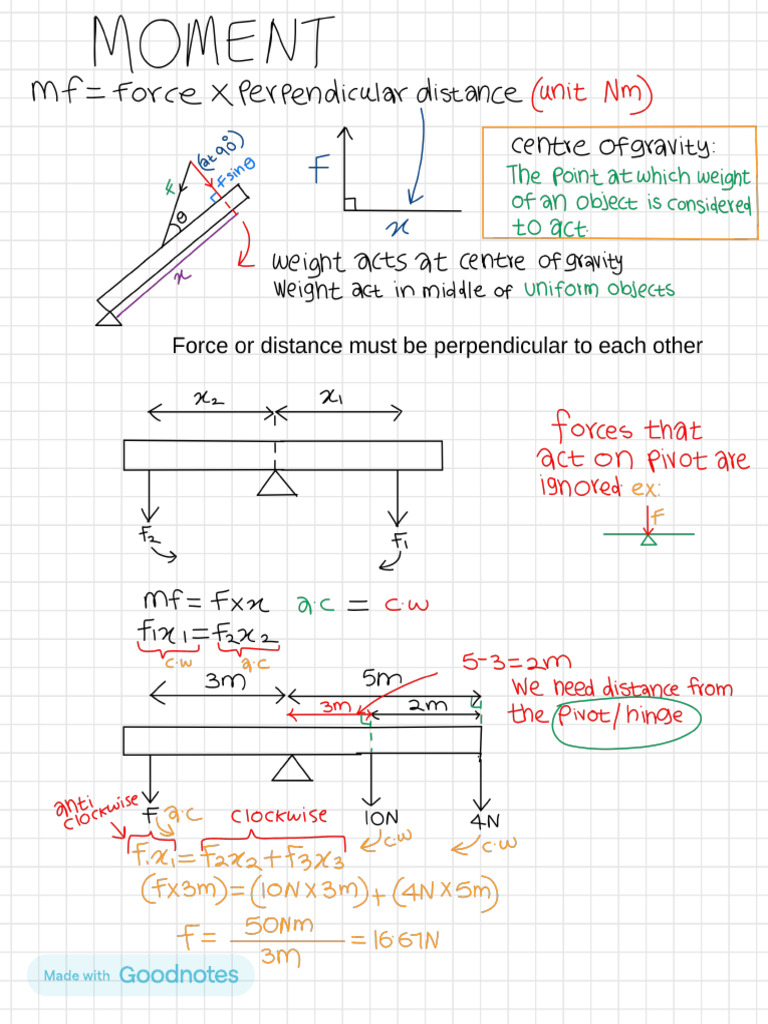 MOMENT
mf = force × perpendicular distance (unit Nm)
(at 90°)
F
F sinθ
θ
x
F
x
centre of gravity:
The point at which weight
of an object is considered
to act.
weight acts at centre of gravity
Weight act in middle of uniform objects
Force or distance must be perpendicular to each other
x2 x1
f2
f1
forces that
act on pivot are
ignored ex:
F
mf = F×x a.c = c.w
f1x1 = f2x2
c.w a.c
5-3=2m
3m 5m
3m 2m
We need distance from
the pivot/hinge
anti
clockwise
F a.c clockwise 10N 4N
c.w c.w
F1x1 = F2x2 + F3x3
(f×3m) = (10N×3m) + (4N×5m)
F = 50Nm / 3m = 16.67N
Made with Goodnotes